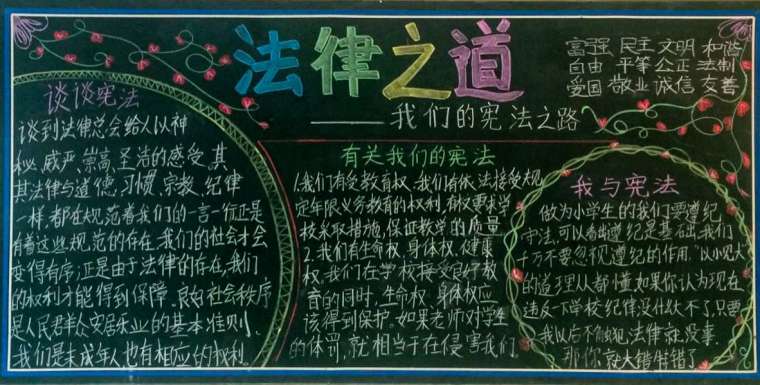 法律之道
——我们的宪法之路
富强 民主 文明 和谐
自由 平等 公正 法制
爱国 敬业 诚信 友善
谈谈宪法
谈到法律总会给人以神
秘、威严、崇高、圣洁的感受、其
其法律与道德、习惯、宗教、纪律
一样,都在规范着我们的一言一行正是
有着这些规范的存在,我们的社会才会
变得有序;正是由于法律的存在,我们
的权利才能得到保障、良好社会秩序
是人民群众安居乐业的基本准则、
我们是未成年人也有相应的权利
有关我们的宪法
1.我们有受教育权、我们有依法接受规
定年限义务教育的权利,有权要求学
校采取措施,保证教学的质量
2.我们有生命权、身体权、健康
权。我们在学校接受良好教
育的同时,生命权、身体权应
该得到保护。如果老师对学生
的体罚,就相当于在侵害我们
我与宪法
做为小学生的我们要遵纪
守法,可以看出遵纪是基础,我们
千万不要忽视遵纪的作用."以小见大
的道理从都懂如果你认为现在
违反一下学校纪律没什么大不了,只要
我以后不触犯法律就没事.
那你就大错特错了